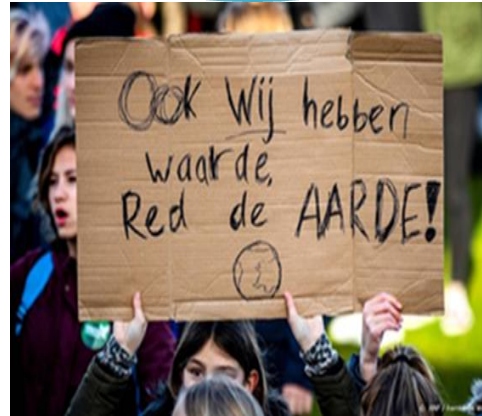 Ook Wij hebben
waarde,
Red de AARDE!